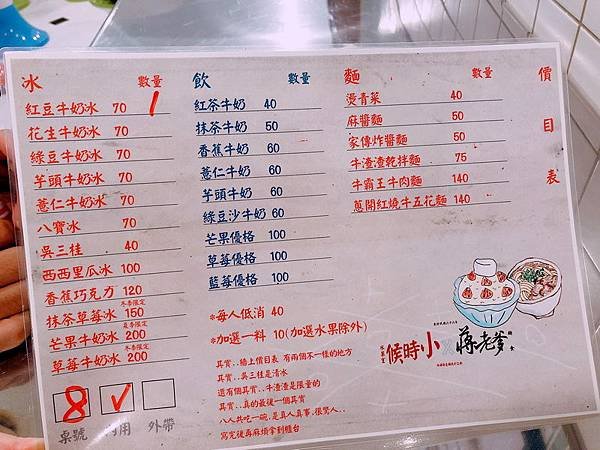 冰 數量
紅豆牛奶冰 70 1
花生牛奶冰 70
綠豆牛奶冰 70
芋頭牛奶冰 70
薏仁牛奶冰 70
八寶冰 70
吳三桂 40
西西里瓜冰 100
香蕉巧克力 120
冬季限定
抹茶草莓冰 150
夏季限定
芒果牛奶冰 200
冬季限定
草莓牛奶冰 200
8 ✓
桌號 內用 外帶
飲 數量
紅茶牛奶 40
抹茶牛奶 50
香蕉牛奶 60
薏仁牛奶 60
芋頭牛奶 60
綠豆沙牛奶 60
芒果優格 100
草莓優格 100
藍莓優格 100
*每人低消 40
*加選一料 10(加選水果除外)
其實..牆上價目表 有兩個不一樣的地方
其實..吳三桂是清冰
還有個其實..牛渣渣是限量的
其實..真的最後一個其實
八人共吃一碗,是真人真事,很驚人..
寫完後再麻煩拿到櫃台
麵 數量
燙青菜 40
麻醬麵 50
家傳炸醬麵 50
牛渣渣乾拌麵 75
牛霸王牛肉麵 140
蔥開紅燒牛五花麵 140
價目表
小時候
蔣老爹